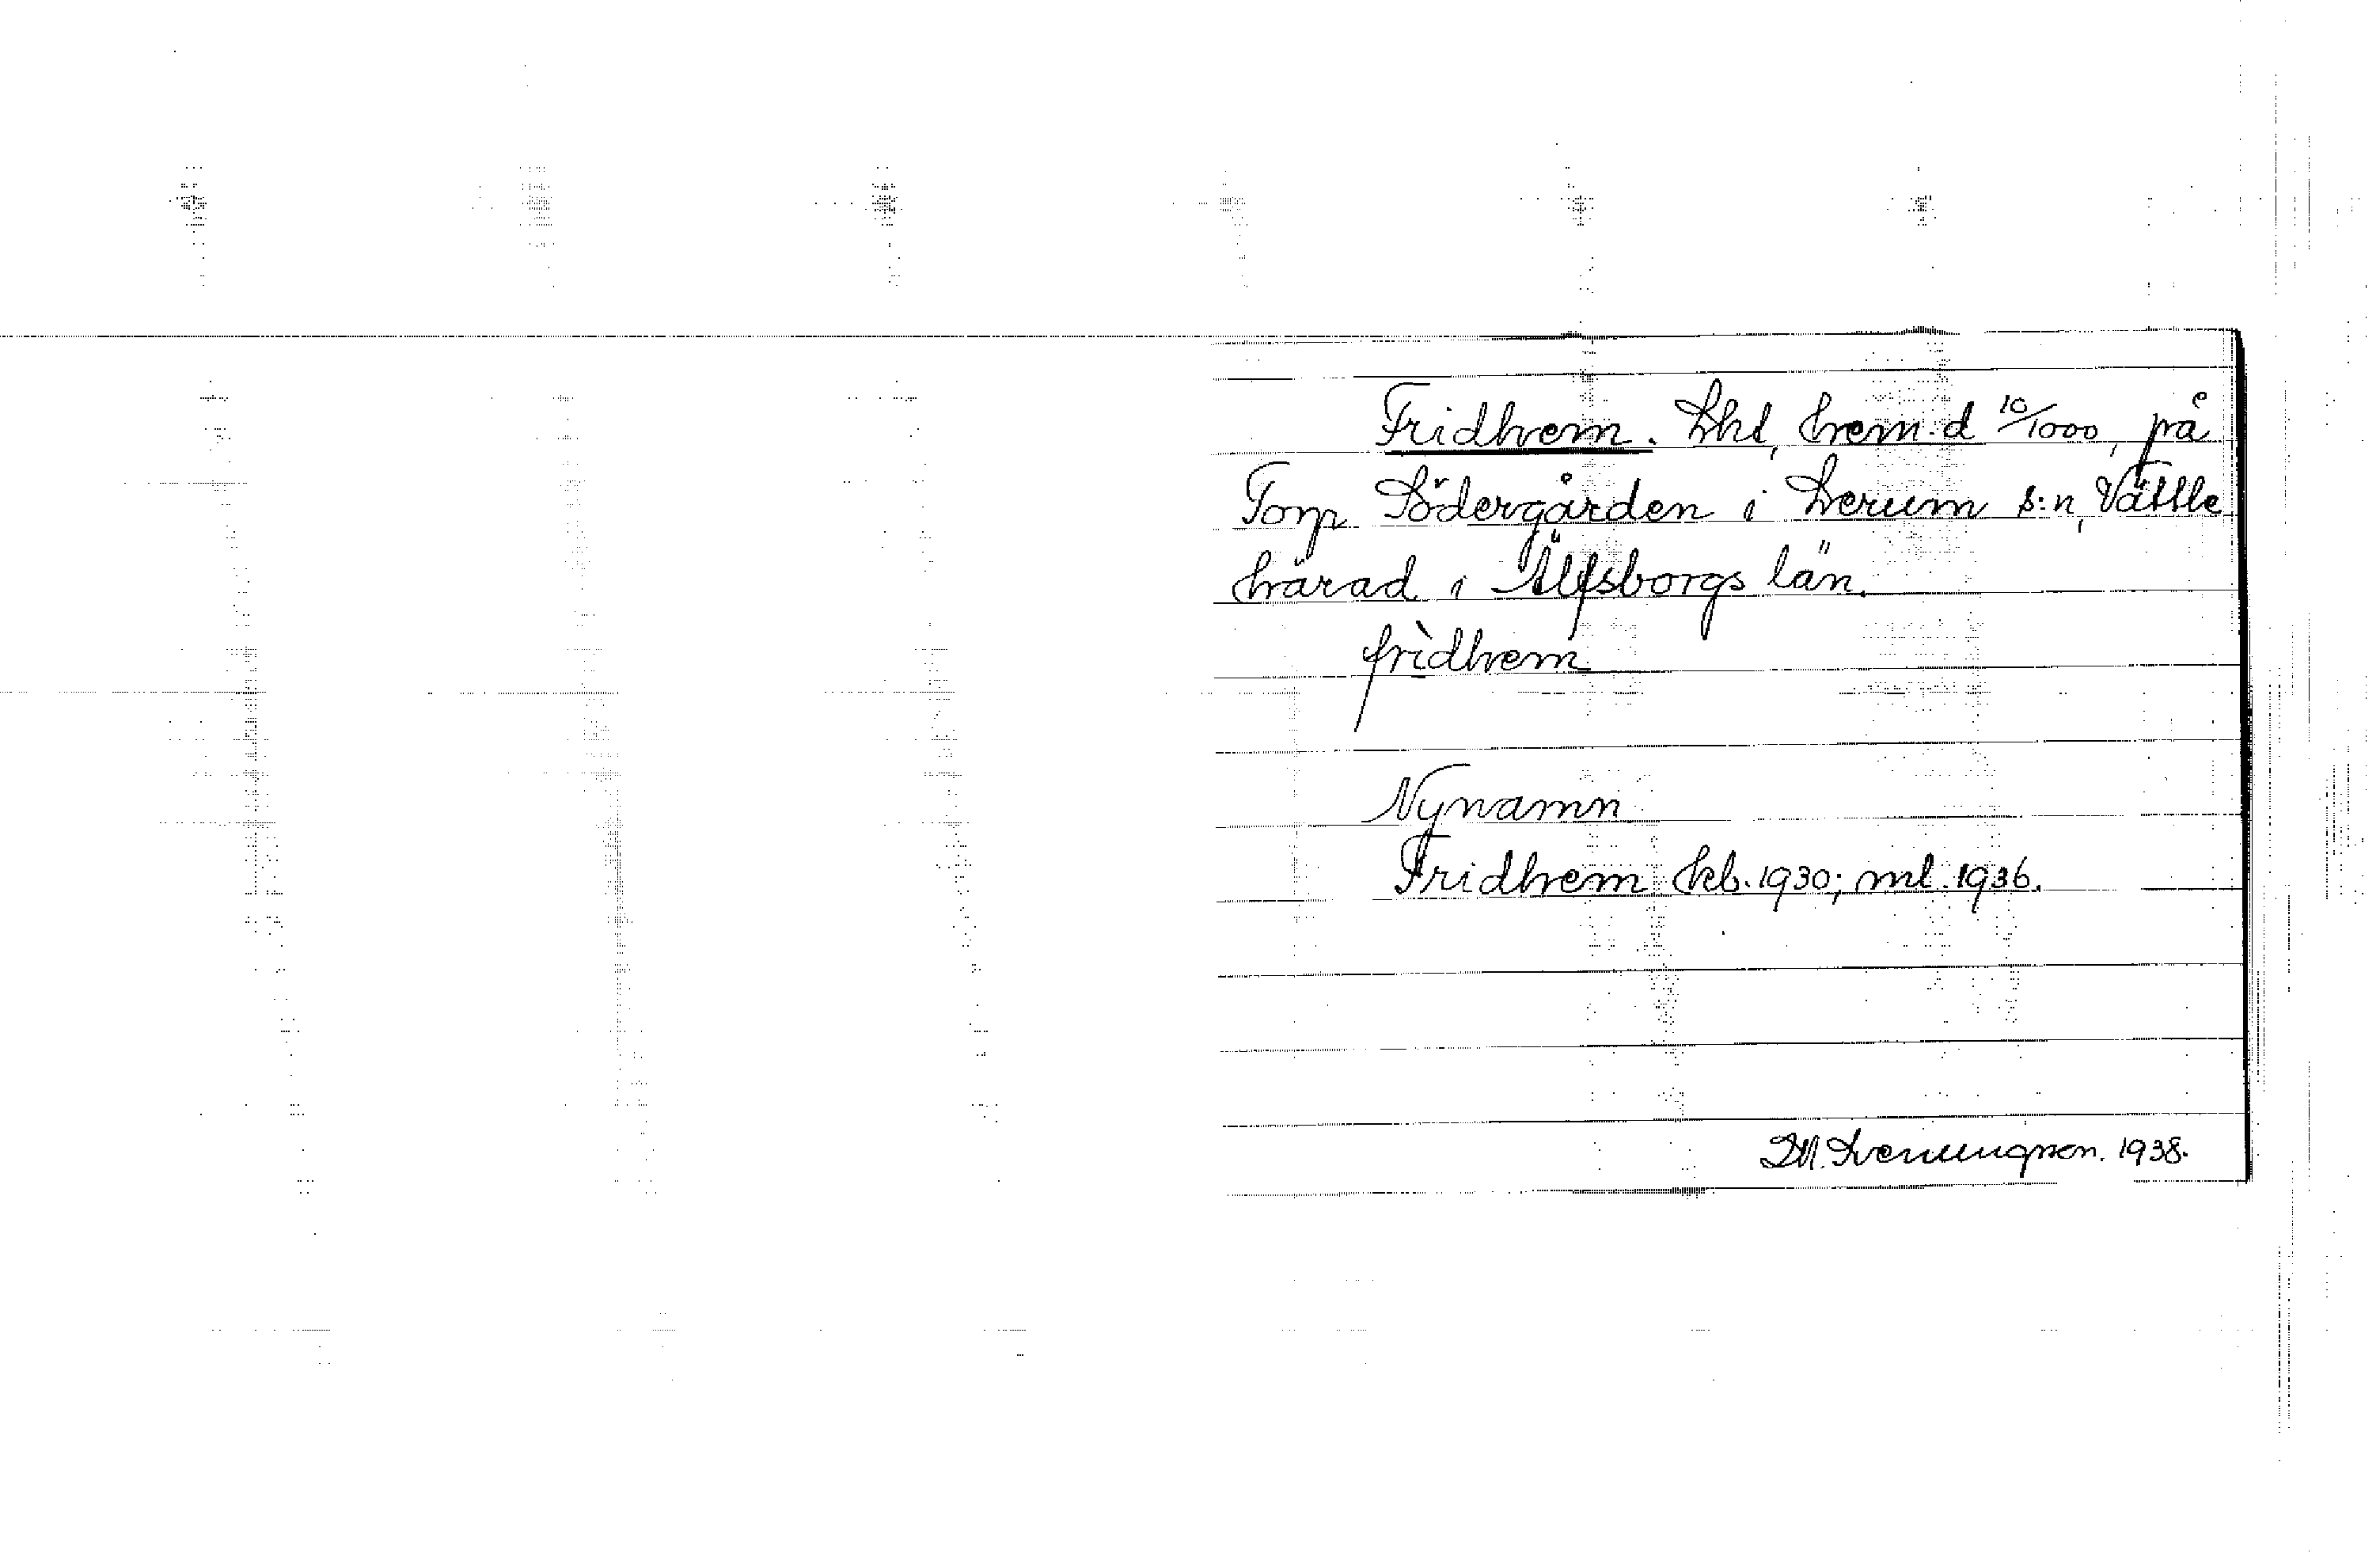 Fridhem. Lht, hem.d 10/1000, på
Torp Södergården i Lerum s:n, Vättle
härad i Älfsborgs län.
frìdhem
Nynamn
Fridhem kb. 1930; ml. 1936.
1938.